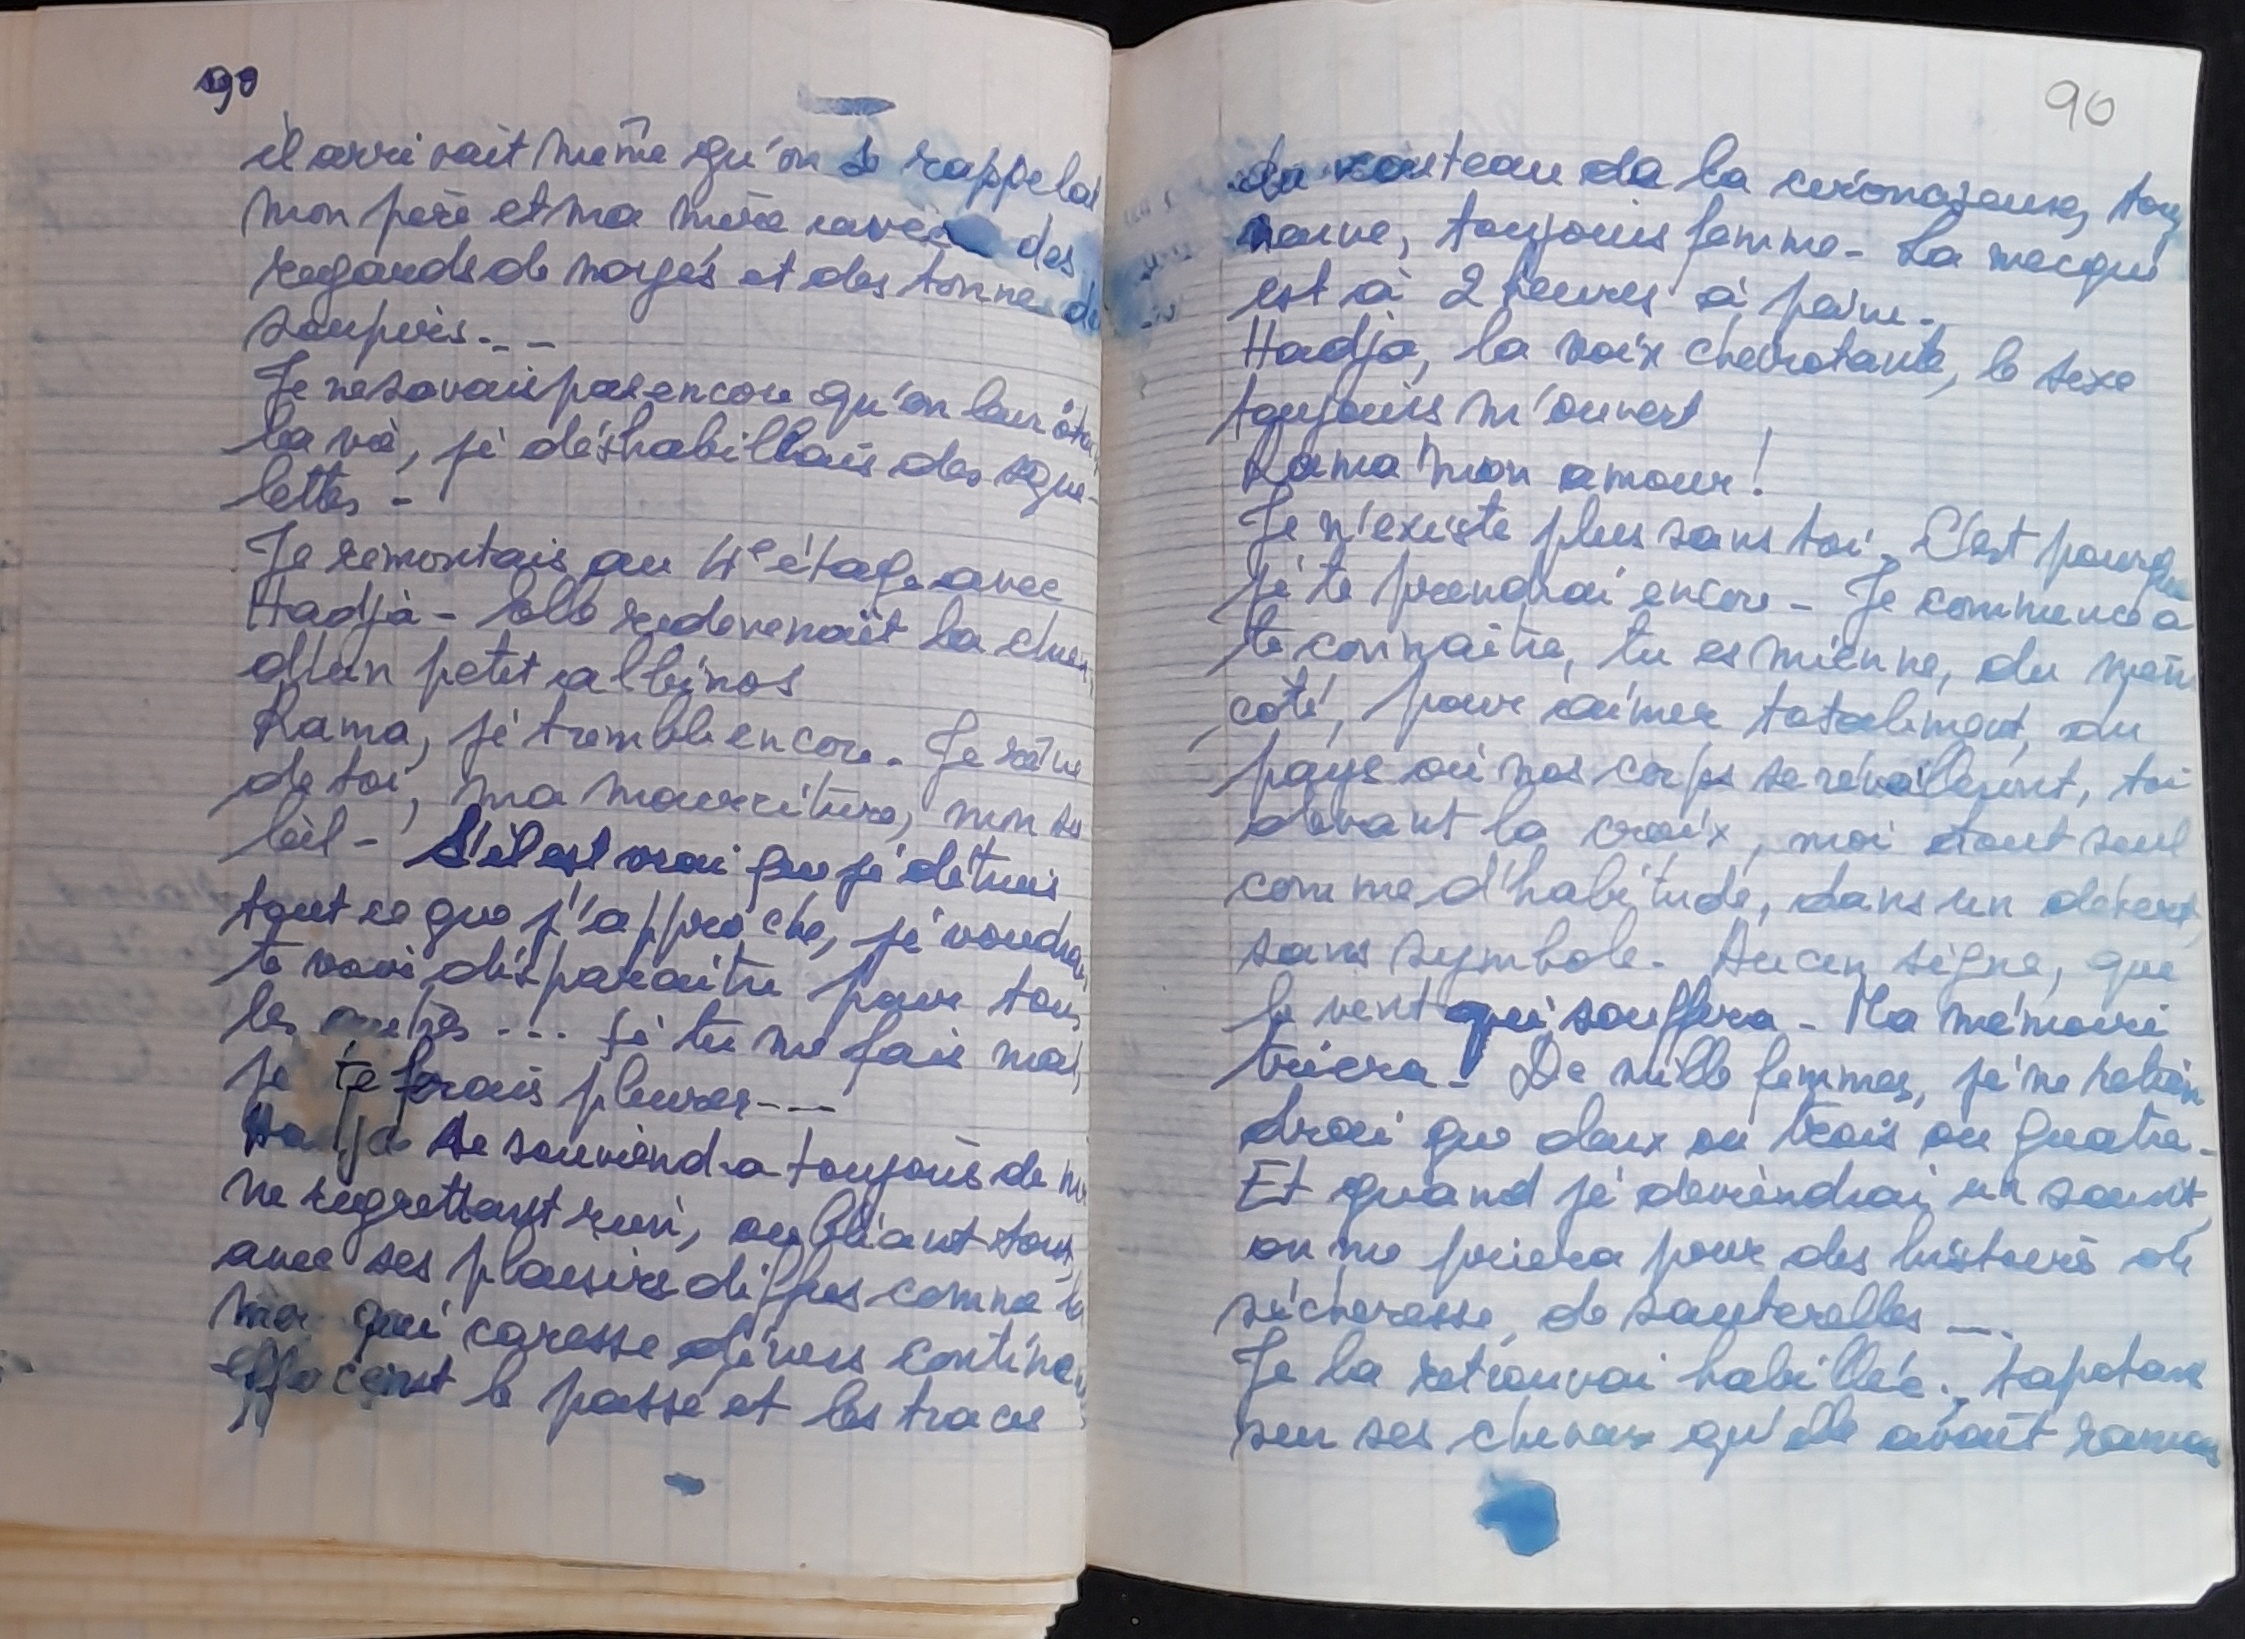 90
il arrivait même qu'on se rappelât
mon père et ma mère avec des
regards de noyés et des tonnes de
soupirs...
Je ne savais pas encore qu'on leur ôtait
la vie, je déshabillais des sque-
lettes -
Je remontais au 4e étage avec
Hadja - Elle redevenait la
d'un petit albinos
Rama, je tremble encore. Je rêve
de toi, ma nourriture, mon so
leil - S'il est vrai que je détruis
tout ce que j'approche, je voudrais
te voir disparaitre pour tous
les autres ... Si tu me fais mal,
je te ferais pleurer ---
Hadja se souviendra toujours de
ne regrettant rien, oubliant tout,
avec ses plaisirs diffus comme la
mer qui caresse divers continents
effaçant le passé et les traces
90
du couteau de la
neuve, toujours femme - La mecque
est à 2 heures à peine.
Hadja, la voix chevrotante, le sexe
toujours m'ouvert
Rama mon amour!
Je n'existe plus sans toi. C'est pourquoi
je te prendrai encore - Je commence à
te connaitre, tu es mienne, du même
côté, pour aimer totalement, du
pays où nos corps se réveilleront, toi
devant la croix, moi étant seul
comme d'habitude, dans un désert,
sans symbole. Aucun signe, que
le vent qui soufflera - Ma mémoire
triera - De mille femmes, je ne retien
drai que deux ou trois ou quatre -
Et quand je deviendrai un saint,
on me priera pour des histoires de
sécheresse, de sauterelles ---
Je la retrouvai habillée, tapotant
sur ses cheveux qu'elle avait